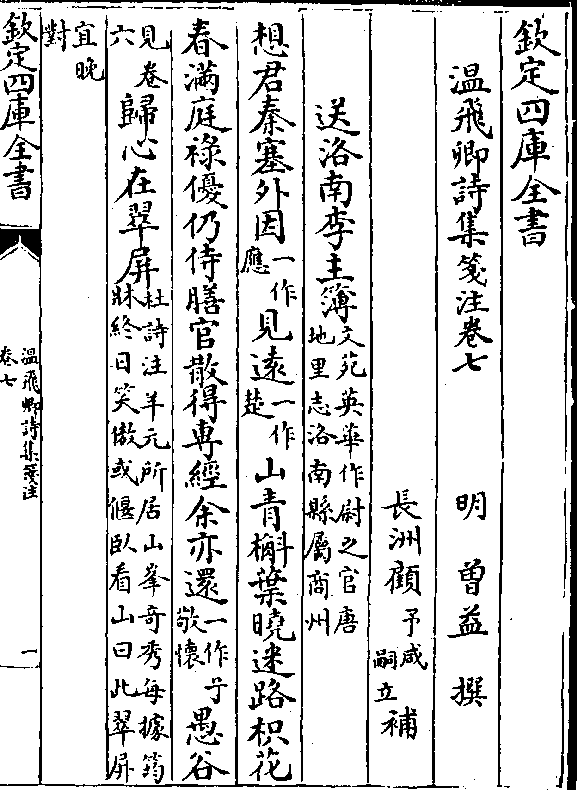 欽定四庫全書
温飛卿詩集箋注卷七
明 曾益 撰
長洲顧予咸嗣立補
送洛南李主簿文苑英華作尉之官唐地里志洛南縣屬商州
想君秦塞外因一作應見遠一作楚山青槲葉曉迷路枳花
春滿庭祿優仍侍膳官散得專經余亦還一作兮敬懷愚谷
見卷六歸心在翠屏杜詩注羊元所居山峯奇秀每據筠牀終日笑傲或偃臥看山曰此翠屏
宜晚對
欽定四庫全書
温飛卿詩集箋注
卷七
一